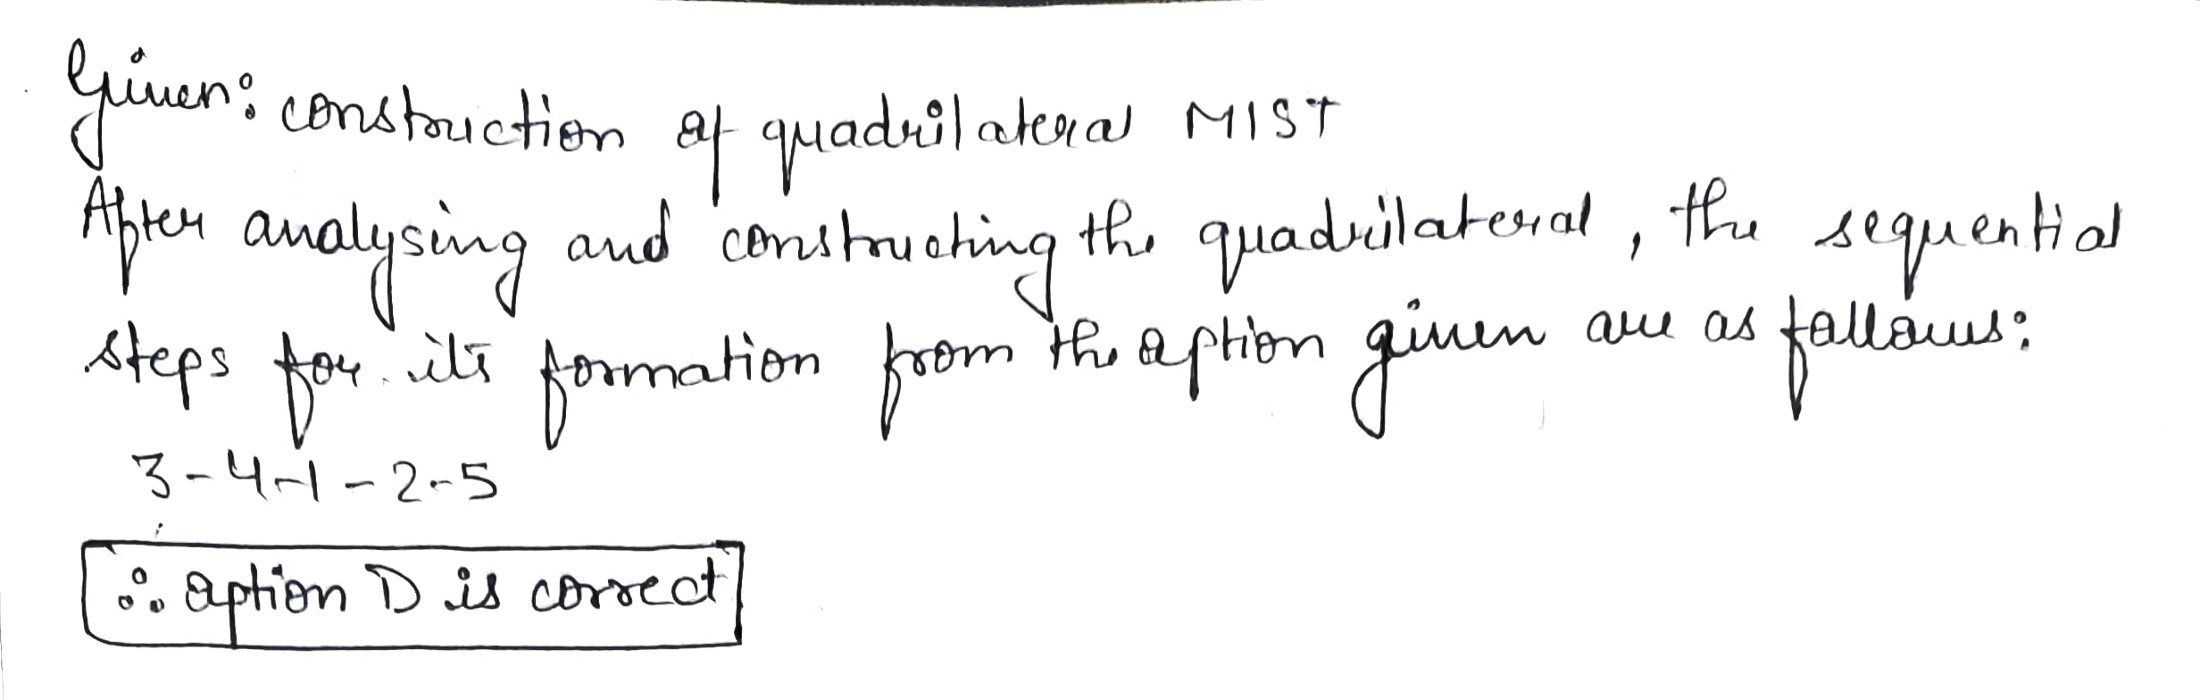 Given: construction of quadrilateral MIST
After analysing and constructing the quadrilateral, the sequential
steps for its formation from the option given are as follows:
3-4-1-2-5
∴ option D is correct